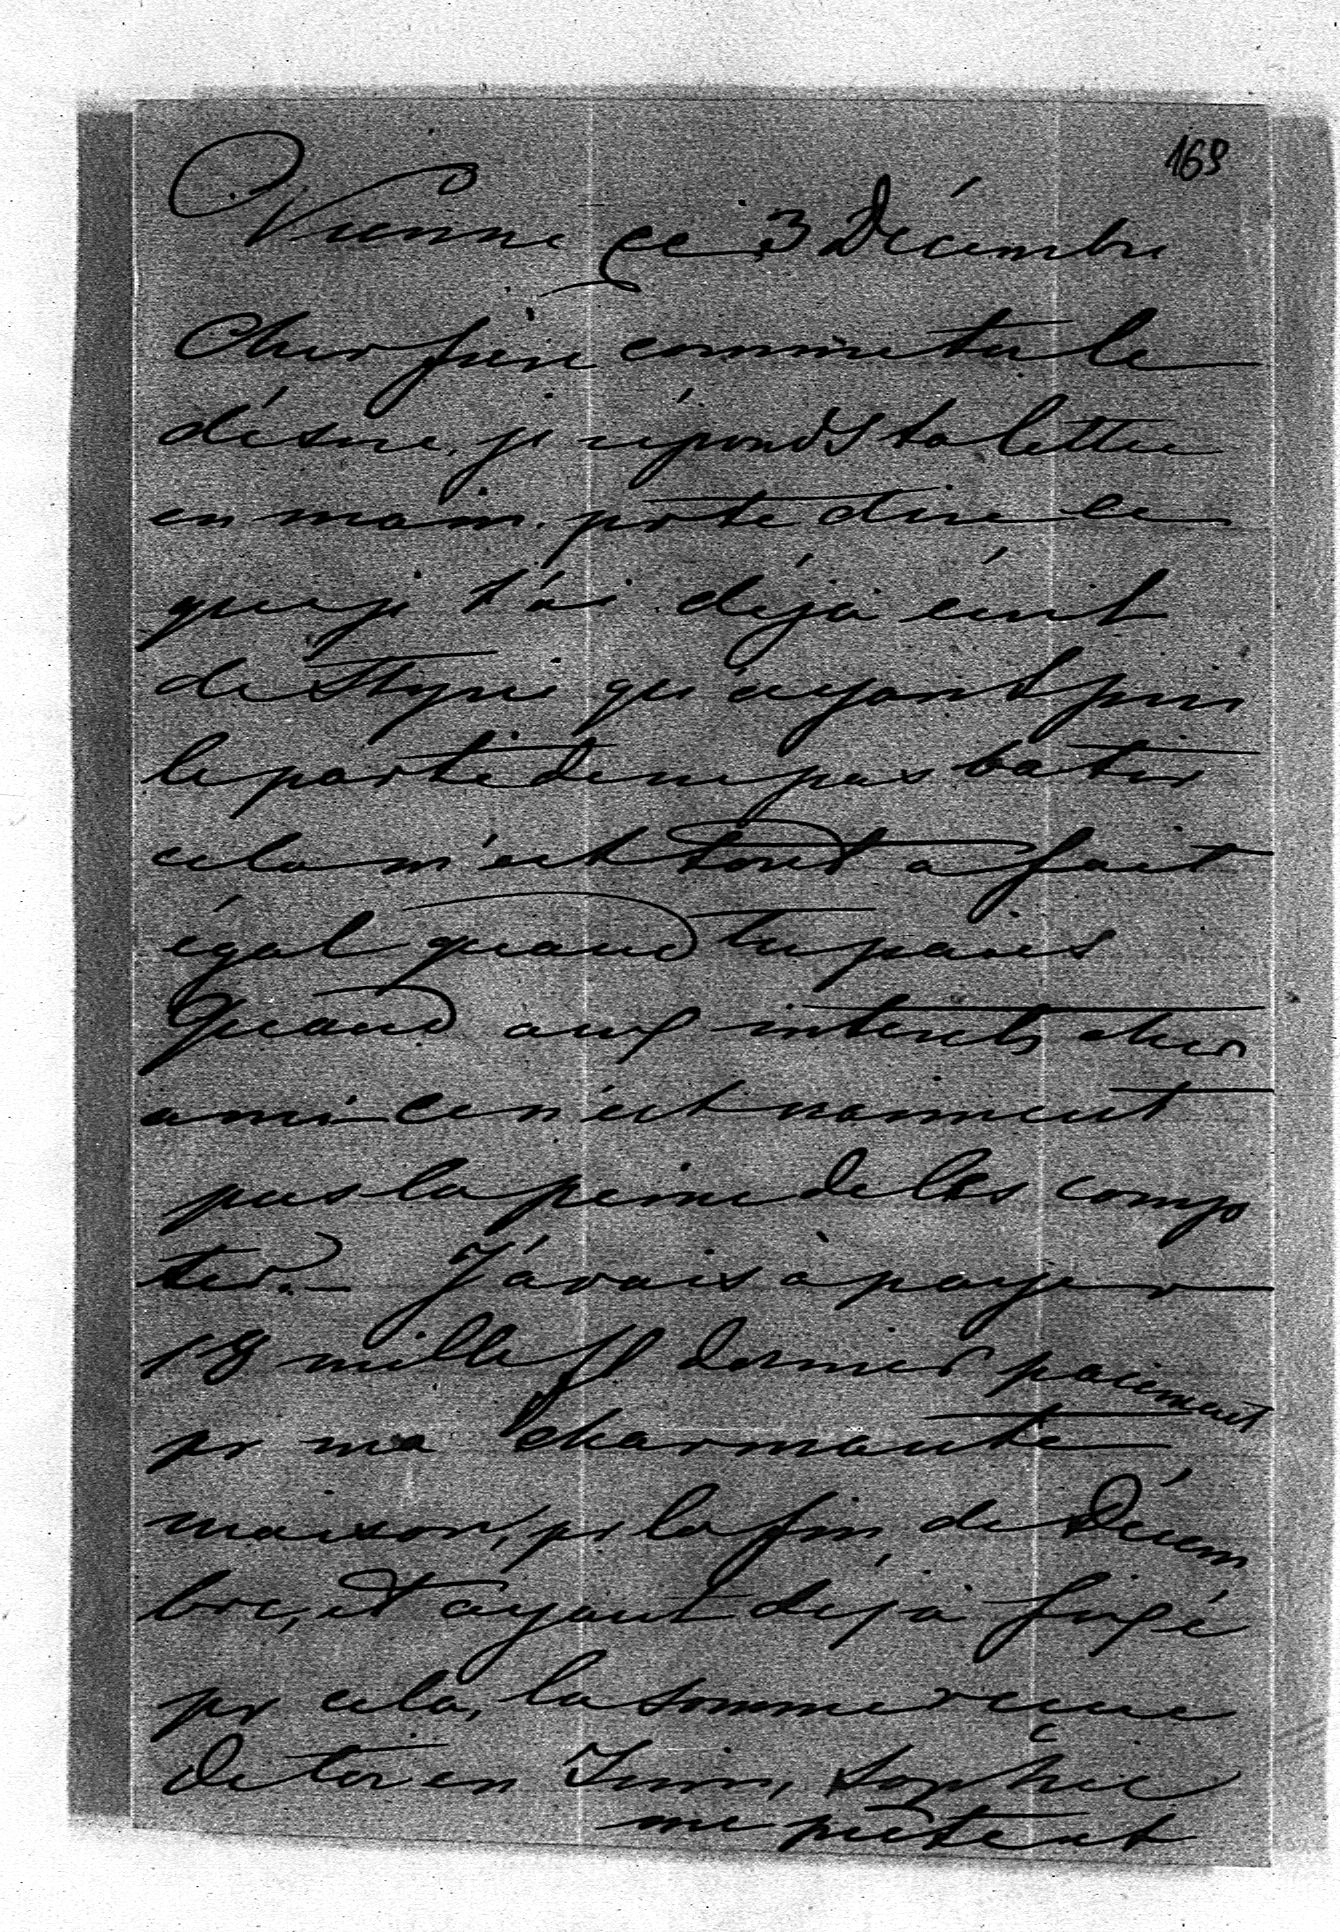 169
Vienne ce 3 Décembre
Cher frère comme tu le
désire, je réponds ta lettre
en main. pr te dire ce
que je t'ai déjà écrit
de Styrie qu'ayant pris
le parti de ne pas batir
cela m'est tout a fait
égal quand tu paies
Quand aux interets cher
ami ce n'est vraiment
pas la peine de les comp
ter. — J'avais a payer
18 mille fl dernier paiement
pr ma charmante
maison, pr la fin de Décem
bre, et ayant déjà fixé
pr cela, la somme recue
de toi en Juin, Sophie
me pretent